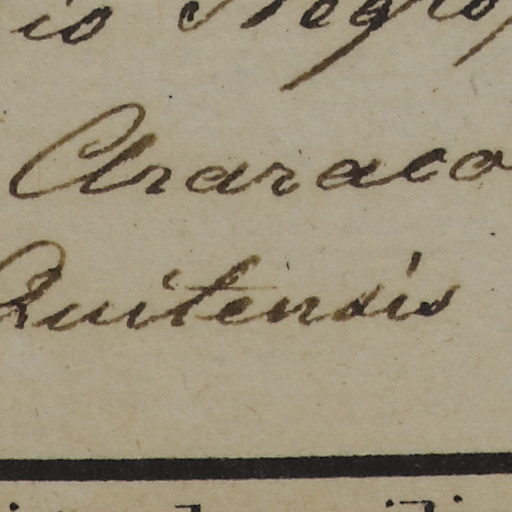 io Negro,
Araraco
Quitensis